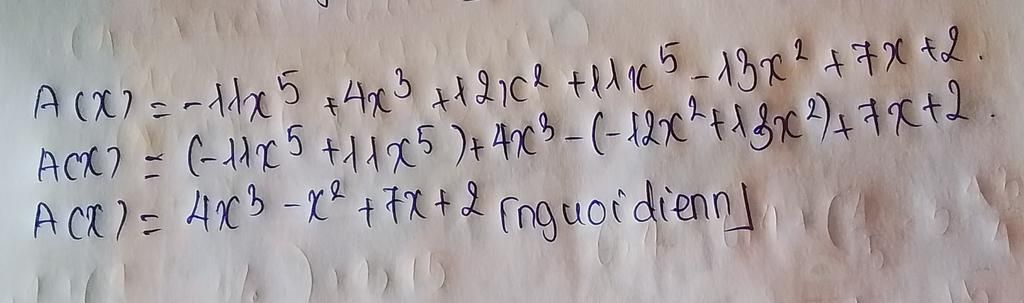 A(x) = -11x⁵ + 4x³ + 12x² + 11x⁵ - 13x² + 7x + 2.
A(x) = (-11x⁵ + 11x⁵) + 4x³ - (-12x² + 13x²) + 7x + 2.
A(x) = 4x³ - x² + 7x + 2 [nguoidienn]